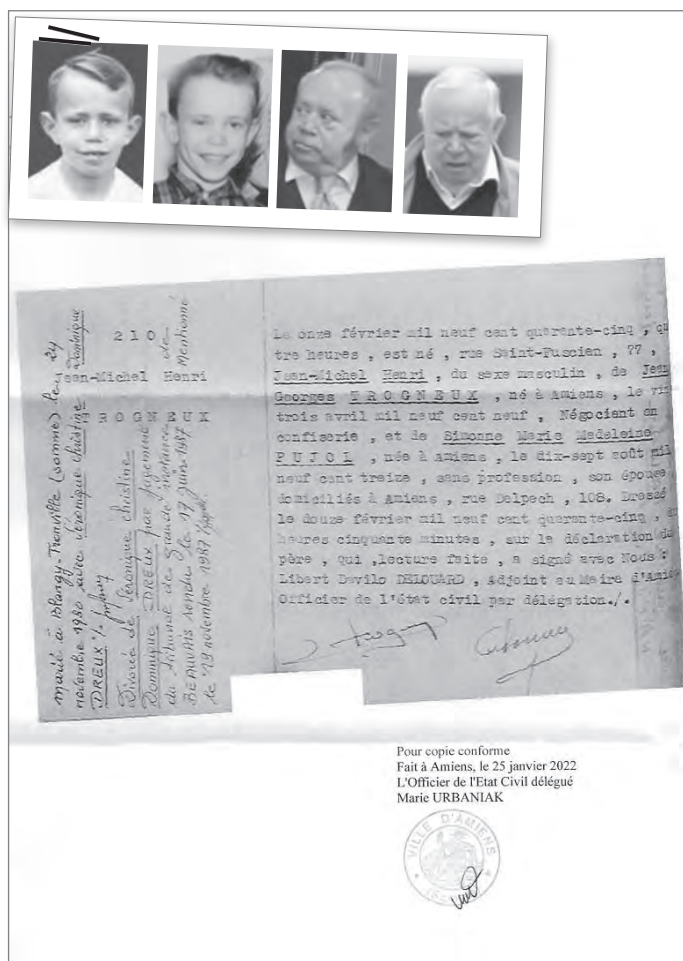 marié à Blangy-Tronville (somme) le 24
novembre 1980 avec Véronique Christine Dominique
DREUX
Divorcé de Véronique Christine
Dominique DREUX par jugement
du tribunal de grande instance de
BEAUVAIS rendu le 17 juin 1987 Mentionné
le 19 novembre 1987
210
Jean-Michel Henri
TROGNEUX
Le onze février mil neuf cent quarante-cinq , qu
tre heures , est né , rue Saint-Fuscien , 77 ,
Jean-Michel Henri , du sexe masculin , de Jean
Georges TROGNEUX , né à Amiens , le vin
trois avril mil neuf cent neuf , Négociant en
confiserie , et de Simonne Marie Madeleine
PUJOL , née à Amiens , le dix-sept août mil
neuf cent treize , sans profession , son épouse
domiciliés à Amiens , rue Delpech , 108. Dressé
le douze février mil neuf cent quarante-cinq ,
heures cinquante minutes , sur la déclaration du
père , qui ,lecture faite , a signé avec Nous :
Libert Davilo DELOUARD , Adjoint au Maire d'Amie
Officier de l'état civil par délégation./.
Pour copie conforme
Fait à Amiens, le 25 janvier 2022
L'Officier de l'Etat Civil délégué
Marie URBANIAK
VILLE D'AMIENS